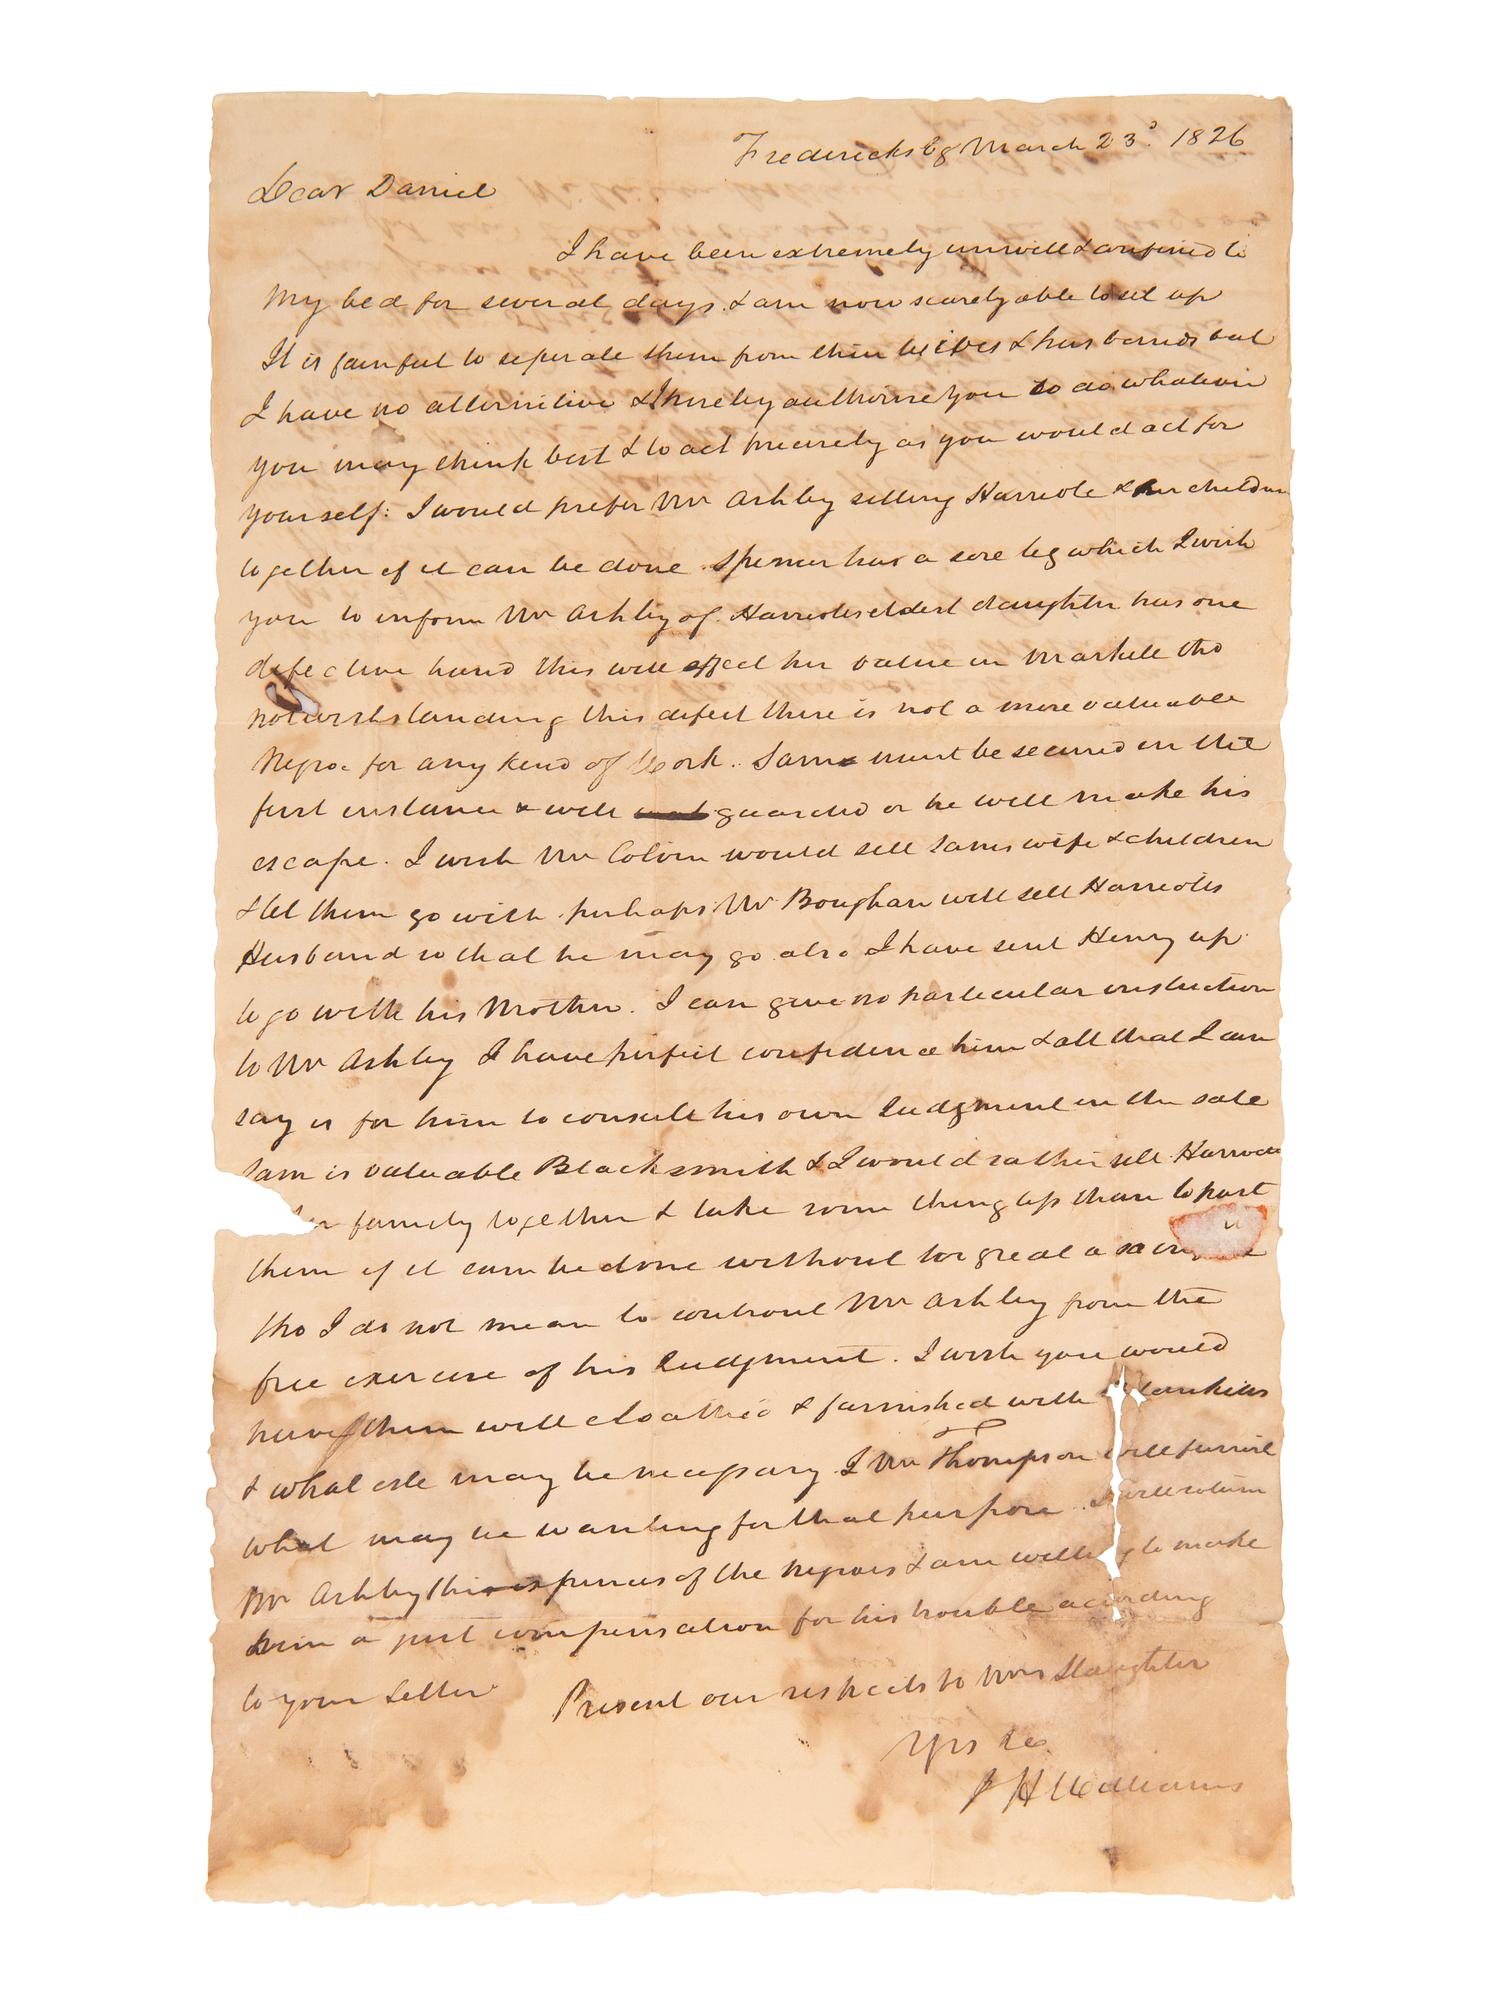 Fredericksbg March 23d. 1826
Dear Daniel
I have been extremely unwell & confined to
My bed for several days. & am now scarely able to set up
It is painful to seperate them from their wives & husbands but
I have no alternitive & I hereby authorise you to do whatever
you may think best & to act precisely as you would act for
yourself: I would prefer Mr Ashby selling Harriote & her children
together if it can be done. Spencer has a sore leg which I wish
you to inform Mr Ashby of. Harriotes eldest daughter has one
defective hand this will effect her value in Markete tho
notwithstanding this defect there is not a more valuable
Negroe for any kind of Work.. Sam must be secured in the
first instance & well guarded or he will make his
escape. I wish Mr Colvin would sell Sams wife & children
& let them go with perhaps Mr Boughan will sell Harriotes
Husband so that he may go also I have sent Henry up
to go with his Mother. I can give no particular instuction
to Mr Ashby I have perfect confidence him & all that I can
say is for him to consult his own Judgment in the sale
Sam is valuable Blacksmith & I would rather sell Harriote
family together & take some thing less than to part
them if it can be done without to great a
tho I do not mean to controul Mr Ashby from the
free exercise of his Judgment. I wish you would
have them well cloathed & furnished with Blankets
& what else may be necessary. I Mr Thompson will furnish
what may be wanting for that purpose. I will return
Mr Ashby the expences of the Negroes & am willing to make
him a just compensation for his trouble acording
to your Letter Present our respects to Mrs Slaughter
Yrs &c.
J H Williams